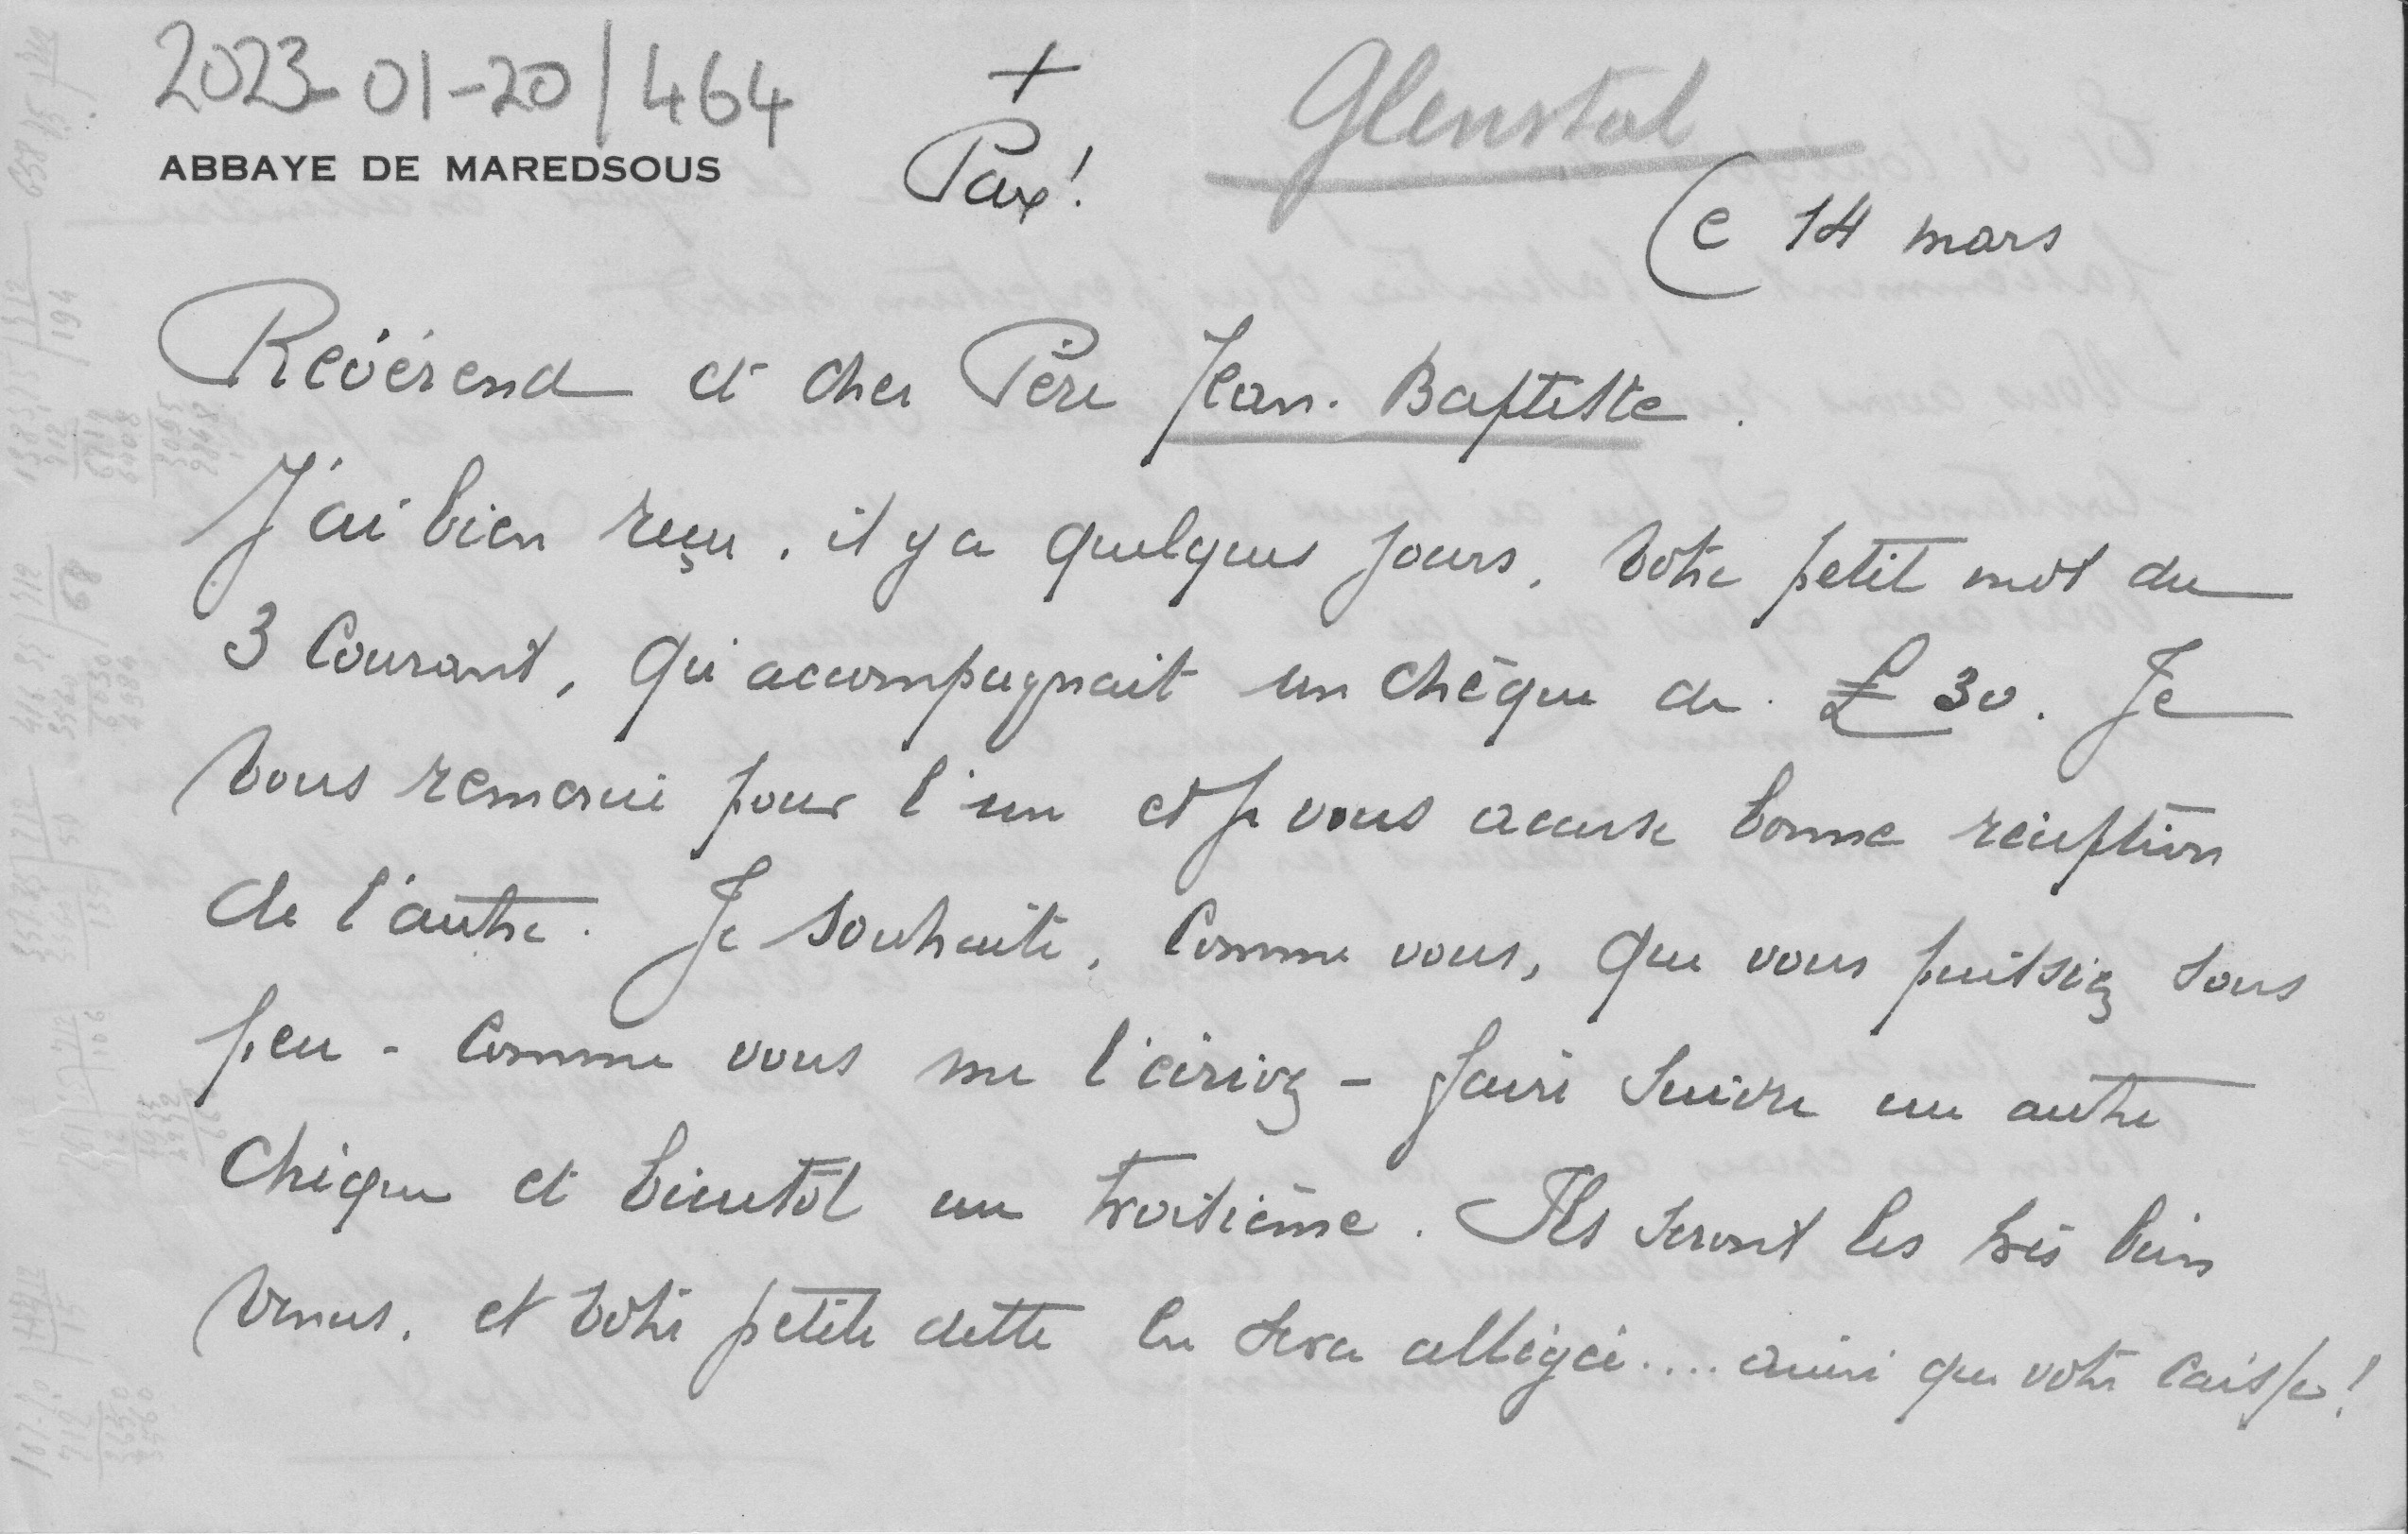 2023-01-20/464
ABBAYE DE MAREDSOUS
+
Pax!
Glenstal
Ce 14 mars
Révérend et cher Père Jean-Baptiste.
J'ai bien reçu, il y a quelques jours, votre petit mot du
3 courant, qui accompagnait un chèque de £ 30. Je
vous remercie pour l'un et je vous accuse bonne réception
de l'autre. Je souhaite, comme vous, que vous puissiez sous
peu - comme vous me l'écrivez - faire suivre un autre
chèque et bientôt un troisième. Ils seront les très bien
venus, et votre petite dette en sera allégée.... ainsi que votre caisse!